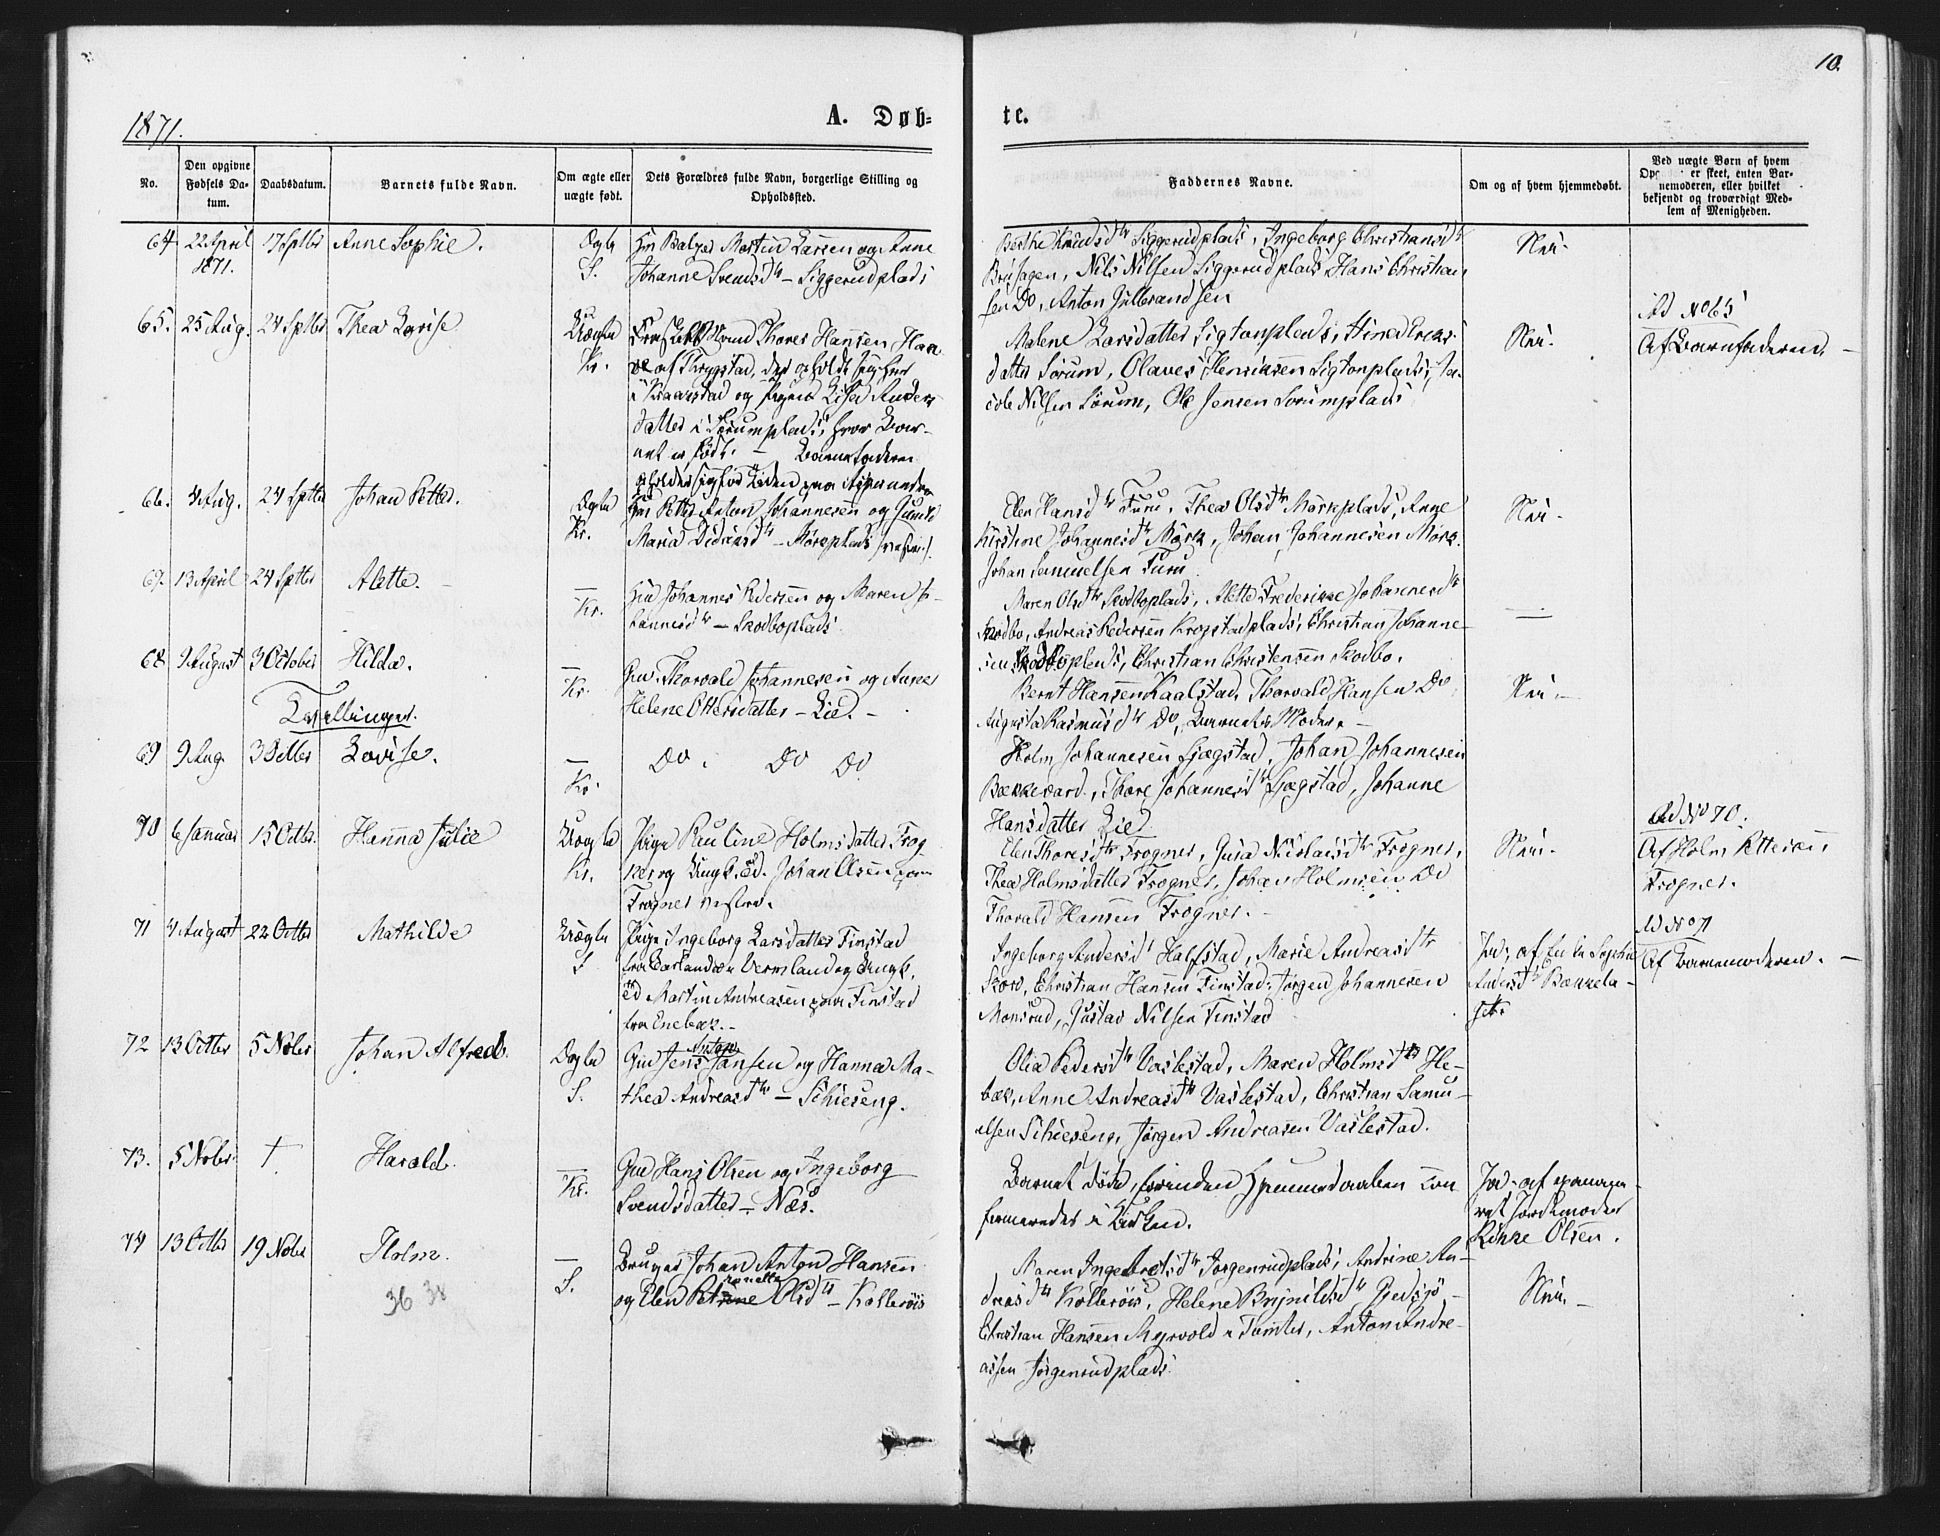 10.
1871.
A. Døb-
te.
No.
Den opgivne Fødsels Da-tum.
Daabsdatum.
Barnets fulde Navn.
Om ægte eller uægte født.
Dets Forældres fulde Navn, borgerlige Stilling og Opholdssted.
Faddernes Navne.
Om og af hvem hjemmedøbt.
Ved uægte Børn af hvem
er skeet, enten Bar-
nemoderen, eller hvilket
bekjendt og troværdigt Med-
lem af Menigheden.
64 22 April 1871. 17 Sptbr Anne Sophie. Ægte S.
Martin Larsen og Anne
Johanne Svendsdtr – Siggerudplads
Berthe Knudsdtr Siggerudplads, Ingeborg Christiansdtr
Nils Nilsen Siggerudplads Hans Christian-
sen Do, Anton Gulbrandsen
Nei.
65. 25 Aug. 24 Sptbr Thea Lovise Uægte Kr.
Thores Hansen
af Thrygstad, der opholdt sig her
i Kraakstad og Pigen Lisa Anders
datter i Sørumplads, hvor Bar-
net er født. – Barnefaderen
opholder sig for Tiden paa
Malene Larsdatter Sigtonplads,
datter Sörum, Olaves Henriksen Sigtonplads, Ja-
cob Nilsen Sörum, Ole Jensen Sörumplads
Nei.
Ad No 65
Af Barnefaderen. –
66. 4 Aug. 24 Sptbr Johan Petter. Ægte Kr.
Petter Anton Johannesen og
Maria – Mørkplads
Elen Hansdtr Furu, Thea Olsdtr Mørkplads, Anne
Kirstine Johannesdtr Mørk, Johan Johannesen Mørk.
Johan Samuelsen Furu
Nei –
67. 13 April 24 Sptbr Alette. – Kr.
Johannes Pedersen og Maren Jo-
hannesdtr – Skodboplads
Maren Olsdtr Skodboplads, Alette Frederikke Johannesdtr
Skodbo, Andreas Pedersen Krogstadplads, Christian Johanne-
sen Skodboplads, Christian Christensen Skodbo.
—
68 9 August 3 October Hilda. – Kr.
Thorvald Johannesen og Anne
Helene Ottersdatter – Lie. –
Bernt Hansen Kaalstad, Thorvald Hansen Do,
Augusta Rasmusdtr Do, Barnets Moder. –
Nei. –
Tvillinger.
69 9 Aug. 3 Octbr Lovise. – Kr.
Do. Do Do
Holm Johannesen Ljøgstad, Johan Johannesen
Bækkevard, Thore Johannesdtr Ljøgstad, Johanne
Hansdatter Lie
70 6 Januar 15 Octbr. Hanna Julie Uægte Kr.
Pige Pauline Holmsdatter Frog-
ner og Ungk. Johan Olsen
Frogner
Elen Thoresdtr Frogner, Nicolaisdtr Frogner,
Thea Holmsdatter Frogner, Johan Holmsen Do
Thorald Hansen Frogner. –
Nei –
Ad No 70.
Af Holm Pettersen
Frogner.
71 4 August 22 Octbr Mathilde Uægte S
Pige Ingeborg Larsdatter Finstad
fra Vermland og Ungk.
Martin Andreasen paa Finstad
fra Enebak. –
Ingeborg Andersd Halfstad, Marie Andreasdtr
Christian Hansen Finstad, Jørgen Johannesen
Monsrud, Gustav Nilsen Finstad
Ja, af Sophie
Andersdtr
Ad No 71
Af Barnemoderen. –
72 13 Octbr 5 Novbr Johan Alfred. Ægte S.
Anton
Gud Jens Jansen og Hanna Ma-
thea Andreasdtr – Schieseng.
Olia Pedersdtr Vaslestad, Maren Holmsdtr He-
bæk, Anne Andreasdtr Vaslestad, Christian Samu-
elsen Schieseng, Jørgen Andreasen Vaslestad.
73. 5 Novbr † Harald. – Kr.
Gud Hans Olsen og Ingeborg
Svendsdatter – Næs.
Barnet døde, forinden Hjemmedaaben con-
fermeredes i Kirken.
Ja – af examine-
ret Jordemoder
Rikke Olsen.
74 13 Octbr 19 Novbr Holm. – S.
Bruger Johan Anton Hansen
ronella
og Elen Petrine Olsdtr – Kollerøis
Maren Jørgenrudplads, Andrine An-
dreasdtr Kollerøis, Helene Brynildsdtr
Christian Hansen Myrvold i Tomter, Anton Andre-
assen Jørgenrudplads.
Nei. –
36 38